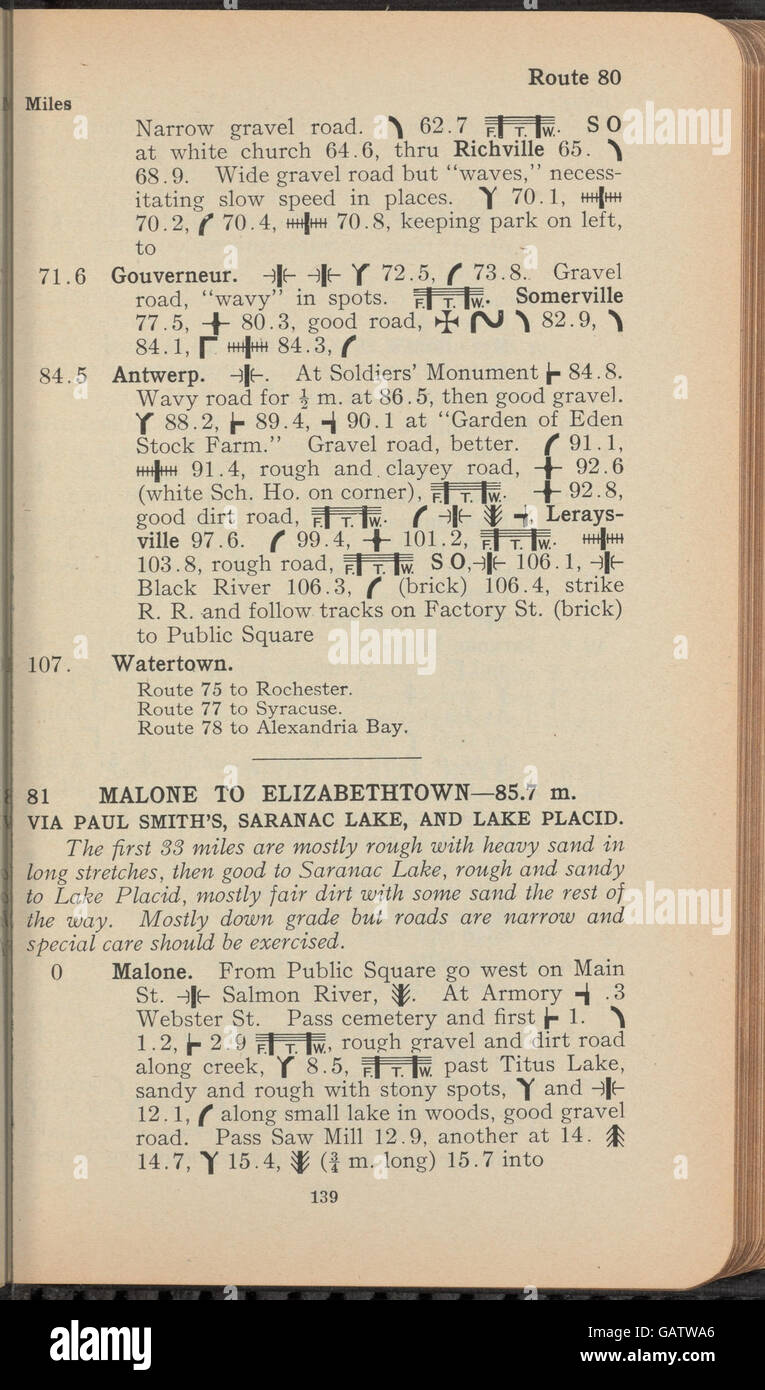 Route 80
Miles
Narrow gravel road. 62.7 F. T. W. S O
at white church 64.6, thru Richville 65.
68.9. Wide gravel road but "waves," necess-
itating slow speed in places. 70.1,
70.2, 70.4, 70.8, keeping park on left,
to
71.6 Gouverneur. 72.5, 73.8. Gravel
road, "wavy" in spots. F. T. W. Somerville
77.5, 80.3, good road, 82.9,
84.1, 84.3,
84.5 Antwerp. At Soldiers' Monument 84.8.
Wavy road for ½ m. at 86.5, then good gravel.
88.2, 89.4, 90.1 at "Garden of Eden
Stock Farm." Gravel road, better. 91.1,
91.4, rough and clayey road, 92.6
(white Sch. Ho. on corner), F. T. W. 92.8,
good dirt road, F. T. W. Lerays-
ville 97.6. 99.4, 101.2, F. T. W.
103.8, rough road, F. T. W. S O, 106.1,
Black River 106.3, (brick) 106.4, strike
R. R. and follow tracks on Factory St. (brick)
to Public Square
107. Watertown.
Route 75 to Rochester.
Route 77 to Syracuse.
Route 78 to Alexandria Bay.
81 MALONE TO ELIZABETHTOWN—85.7 m.
VIA PAUL SMITH'S, SARANAC LAKE, AND LAKE PLACID.
The first 33 miles are mostly rough with heavy sand in
long stretches, then good to Saranac Lake, rough and sandy
to Lake Placid, mostly fair dirt with some sand the rest of
the way. Mostly down grade but roads are narrow and
special care should be exercised.
0 Malone. From Public Square go west on Main
St. Salmon River, . At Armory .3
Webster St. Pass cemetery and first 1.
1.2, 2.9 F. T. W., rough gravel and dirt road
along creek, 8.5, F. T. W. past Titus Lake,
sandy and rough with stony spots, and
12.1, along small lake in woods, good gravel
road. Pass Saw Mill 12.9, another at 14.
14.7, 15.4, (¾ m. long) 15.7 into
139
alamy
alamy
alamy
a
a
a
a
a
a
a
alamy
GATWA6
www.alamy.com